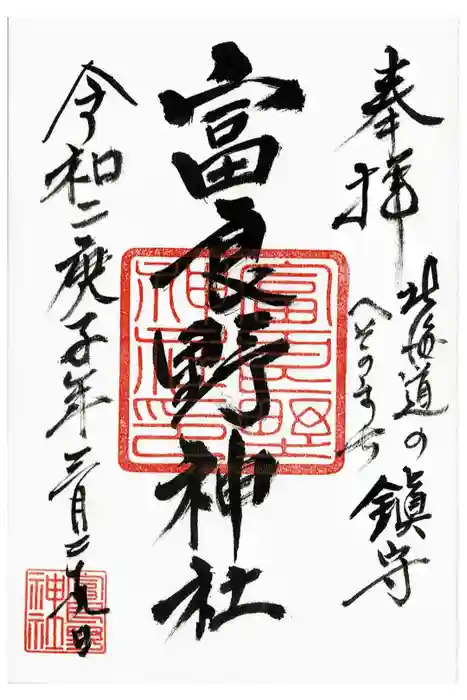 奉拝
北海道の鎭守
へそのまち
富良野神社
富良野神社印
令和二庚子年三月二十九日
富良野神社